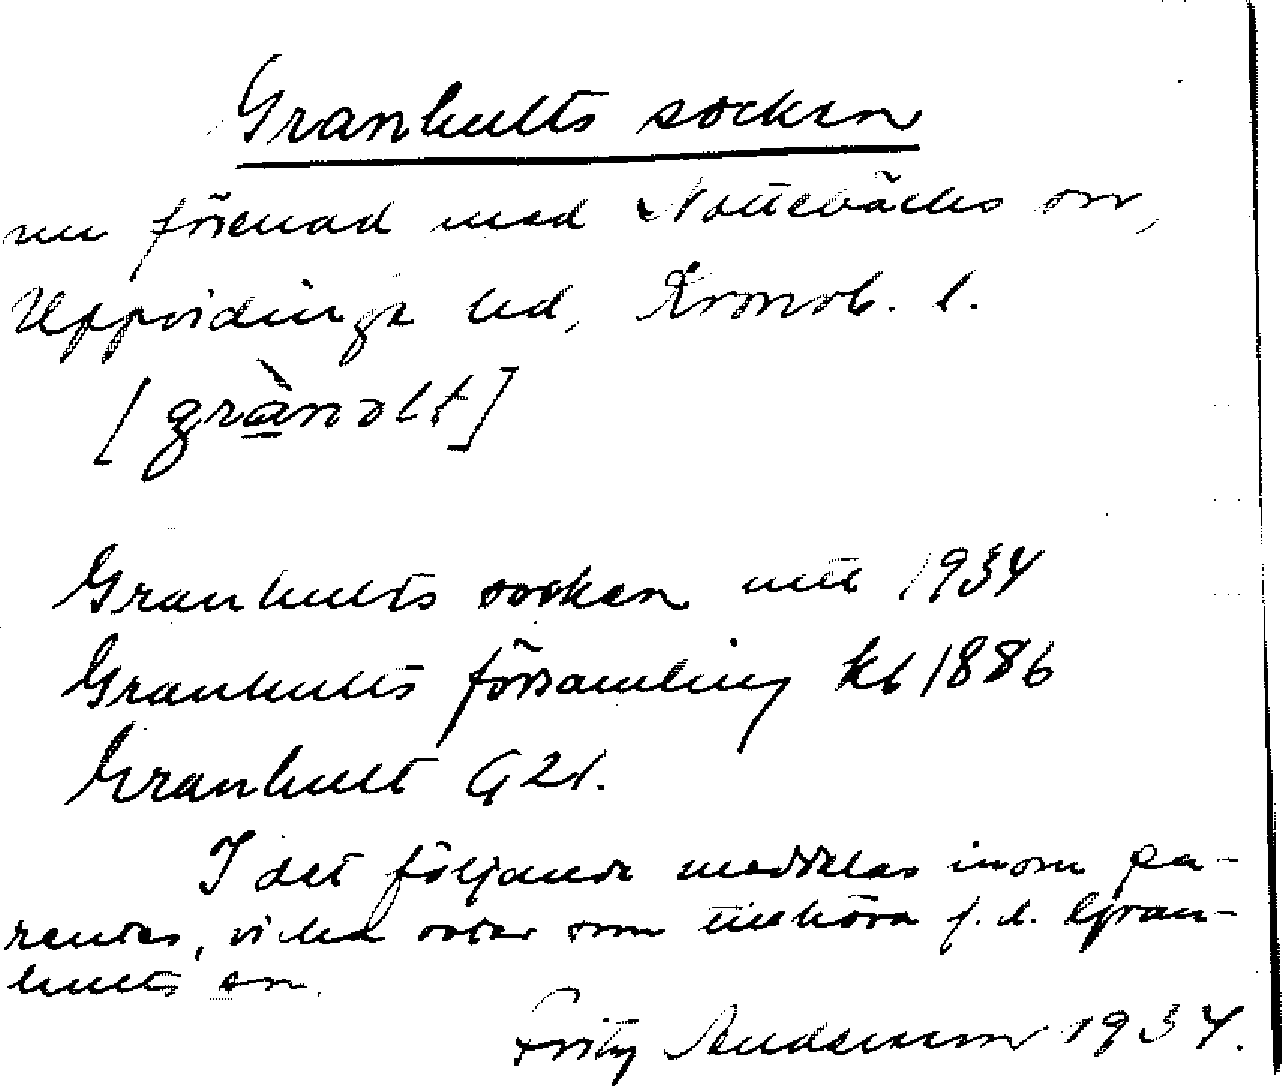 Granhults socken
nu förenad med Nottebäcks sn,
Uppvidinge hd, Kronob. l.
[grànolt]
Granhults socken 1934
Granhults församling kb 1886
Granhult G 21.
I det följande meddelas inom pa-
rentes, vilka orter som tillhöra f.d. Gran-
hults sn.
Fritz Andersson 1934.